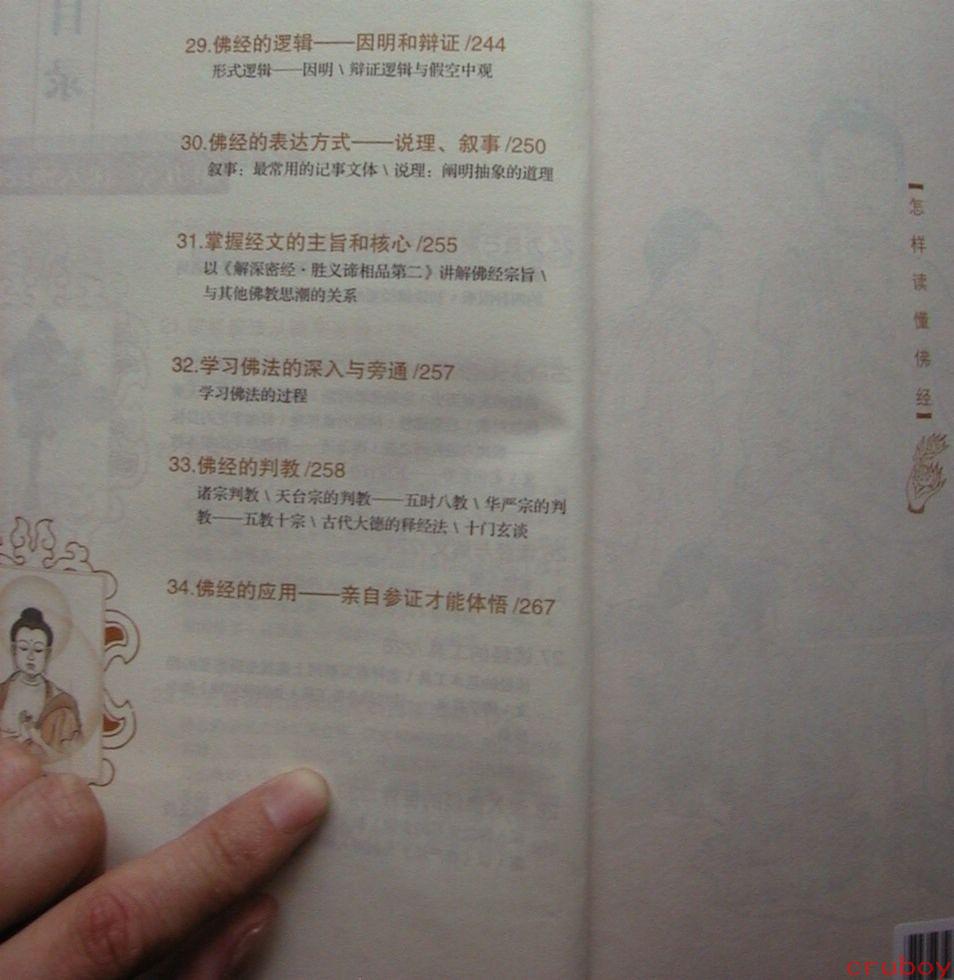 29.佛经的逻辑——因明和辩证 /244
形式逻辑——因明 \ 辩证逻辑与假空中观
30.佛经的表达方式——说理、叙事 /250
叙事：最常用的记事文体 \ 说理：阐明抽象的道理
31.掌握经文的主旨和核心 /255
以《解深密经·胜义谛相品第二》讲解佛经宗旨 \
与其他佛教思潮的关系
32.学习佛法的深入与旁通 /257
学习佛法的过程
33.佛经的判教 /258
诸宗判教 \ 天台宗的判教——五时八教 \ 华严宗的判
教——五教十宗 \ 古代大德的释经法 \ 十门玄谈
34.佛经的应用——亲自参证才能体悟 /267
怎样读懂佛经
cruboy